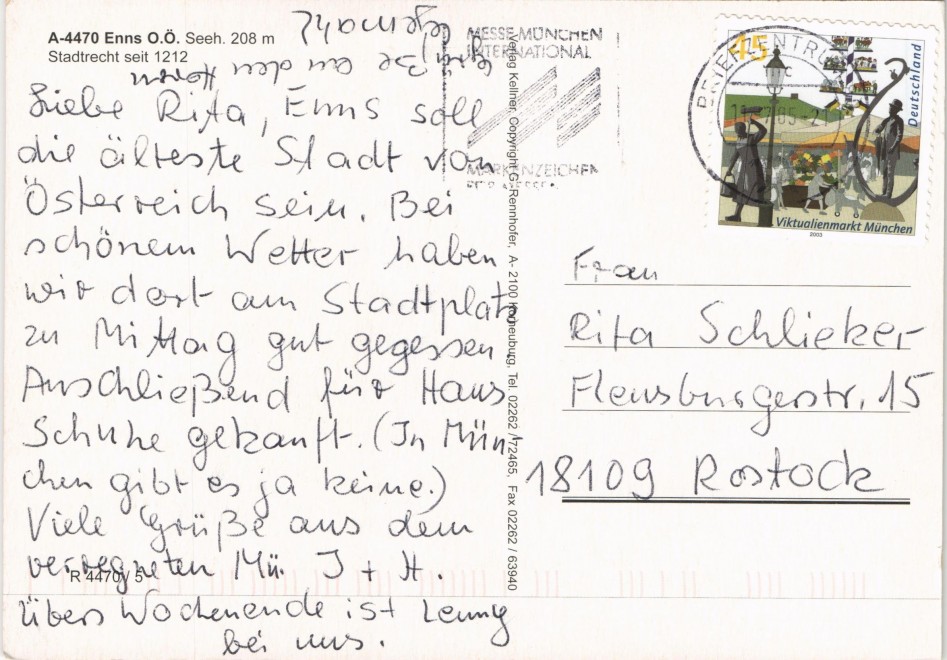 A-4470 Enns O.Ö. Seeh. 208 m
Stadtrecht seit 1212
Liebe Rita, Enns soll
die älteste Stadt von
Österreich sein. Bei
schönem Wetter haben
wir dort am Stadtplatz
zu Mittag gut gegessen
Anschließend für Hans
Schuhe gekauft. (In Mün
chen gibt es ja keine.)
Viele Grüße aus dem
verregneten Mü. J + H.
R 4470/5
Übers Wochenende ist Lenny
bei uns.
an den
Verlag Kellner, Copyright G. Rennhofer, A- 2100 Korneuburg, Tel. 02262 / 72465, Fax 02262 / 63940
MESSE MÜNCHEN
INTERNATIONAL
MARKENZEICHEN
DER MESSEN
BRIEFZENTRUM
45
Deutschland
Viktualienmarkt München
2003
Frau
Rita Schlieker
Flensburgerstr. 15
18109 Rostock